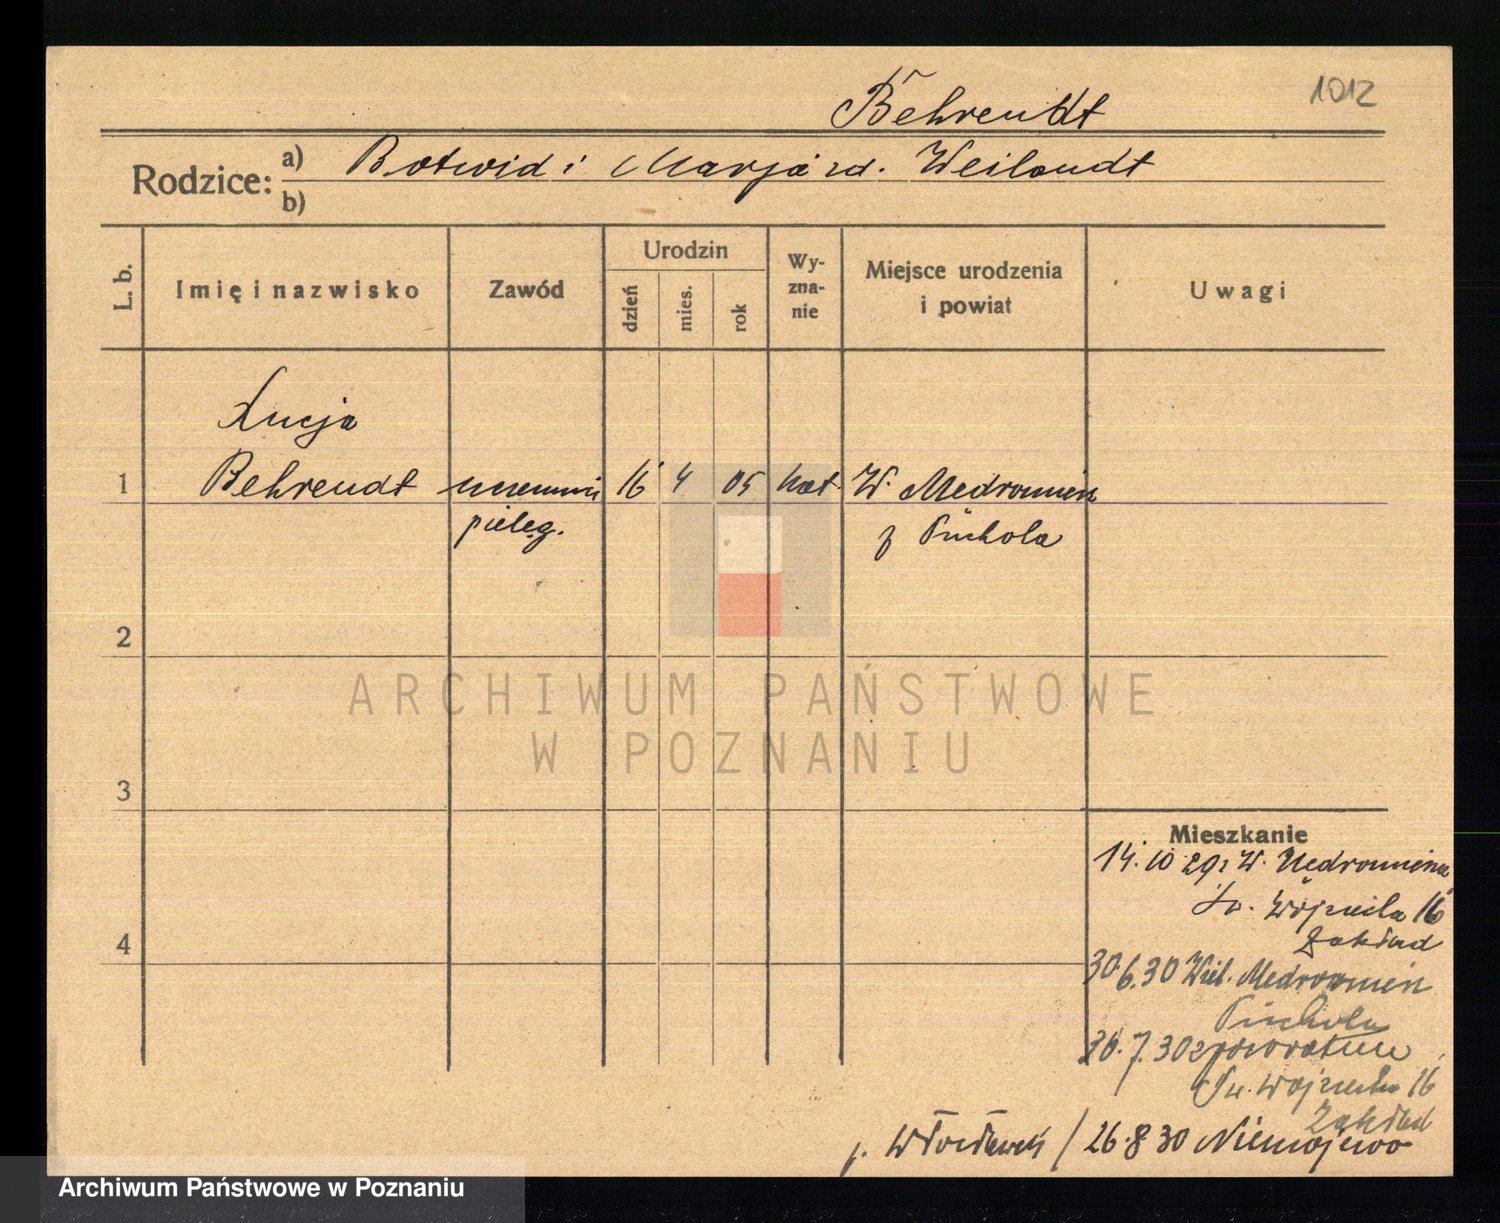 1012
Behrendt
Rodzice: a) Botwid i Marja zd. Weilandt
b)
L. b.
Imię i nazwisko
Zawód
Urodzin
dzień
mies.
rok
Wy-
zna-
nie
Miejsce urodzenia
i powiat
Uwagi
Łucja
1 Behrendt 16 4 05 kat W. Mędromierz
pielęg. p Tuchola
2
3
4
Mieszkanie
14.10 29 z W. Mędromierza
Św. Wojciecha 16
Zakład
30.6.30 Wiel. Mędromierz
Tuchola
30.7.30 z powrotem
Św. Wojciecha 16
Zakład
p. Włocławek / 26.8 30 Niemojewo
ARCHIWUM PAŃSTWOWE
W POZNANIU
Archiwum Państwowe w Poznaniu